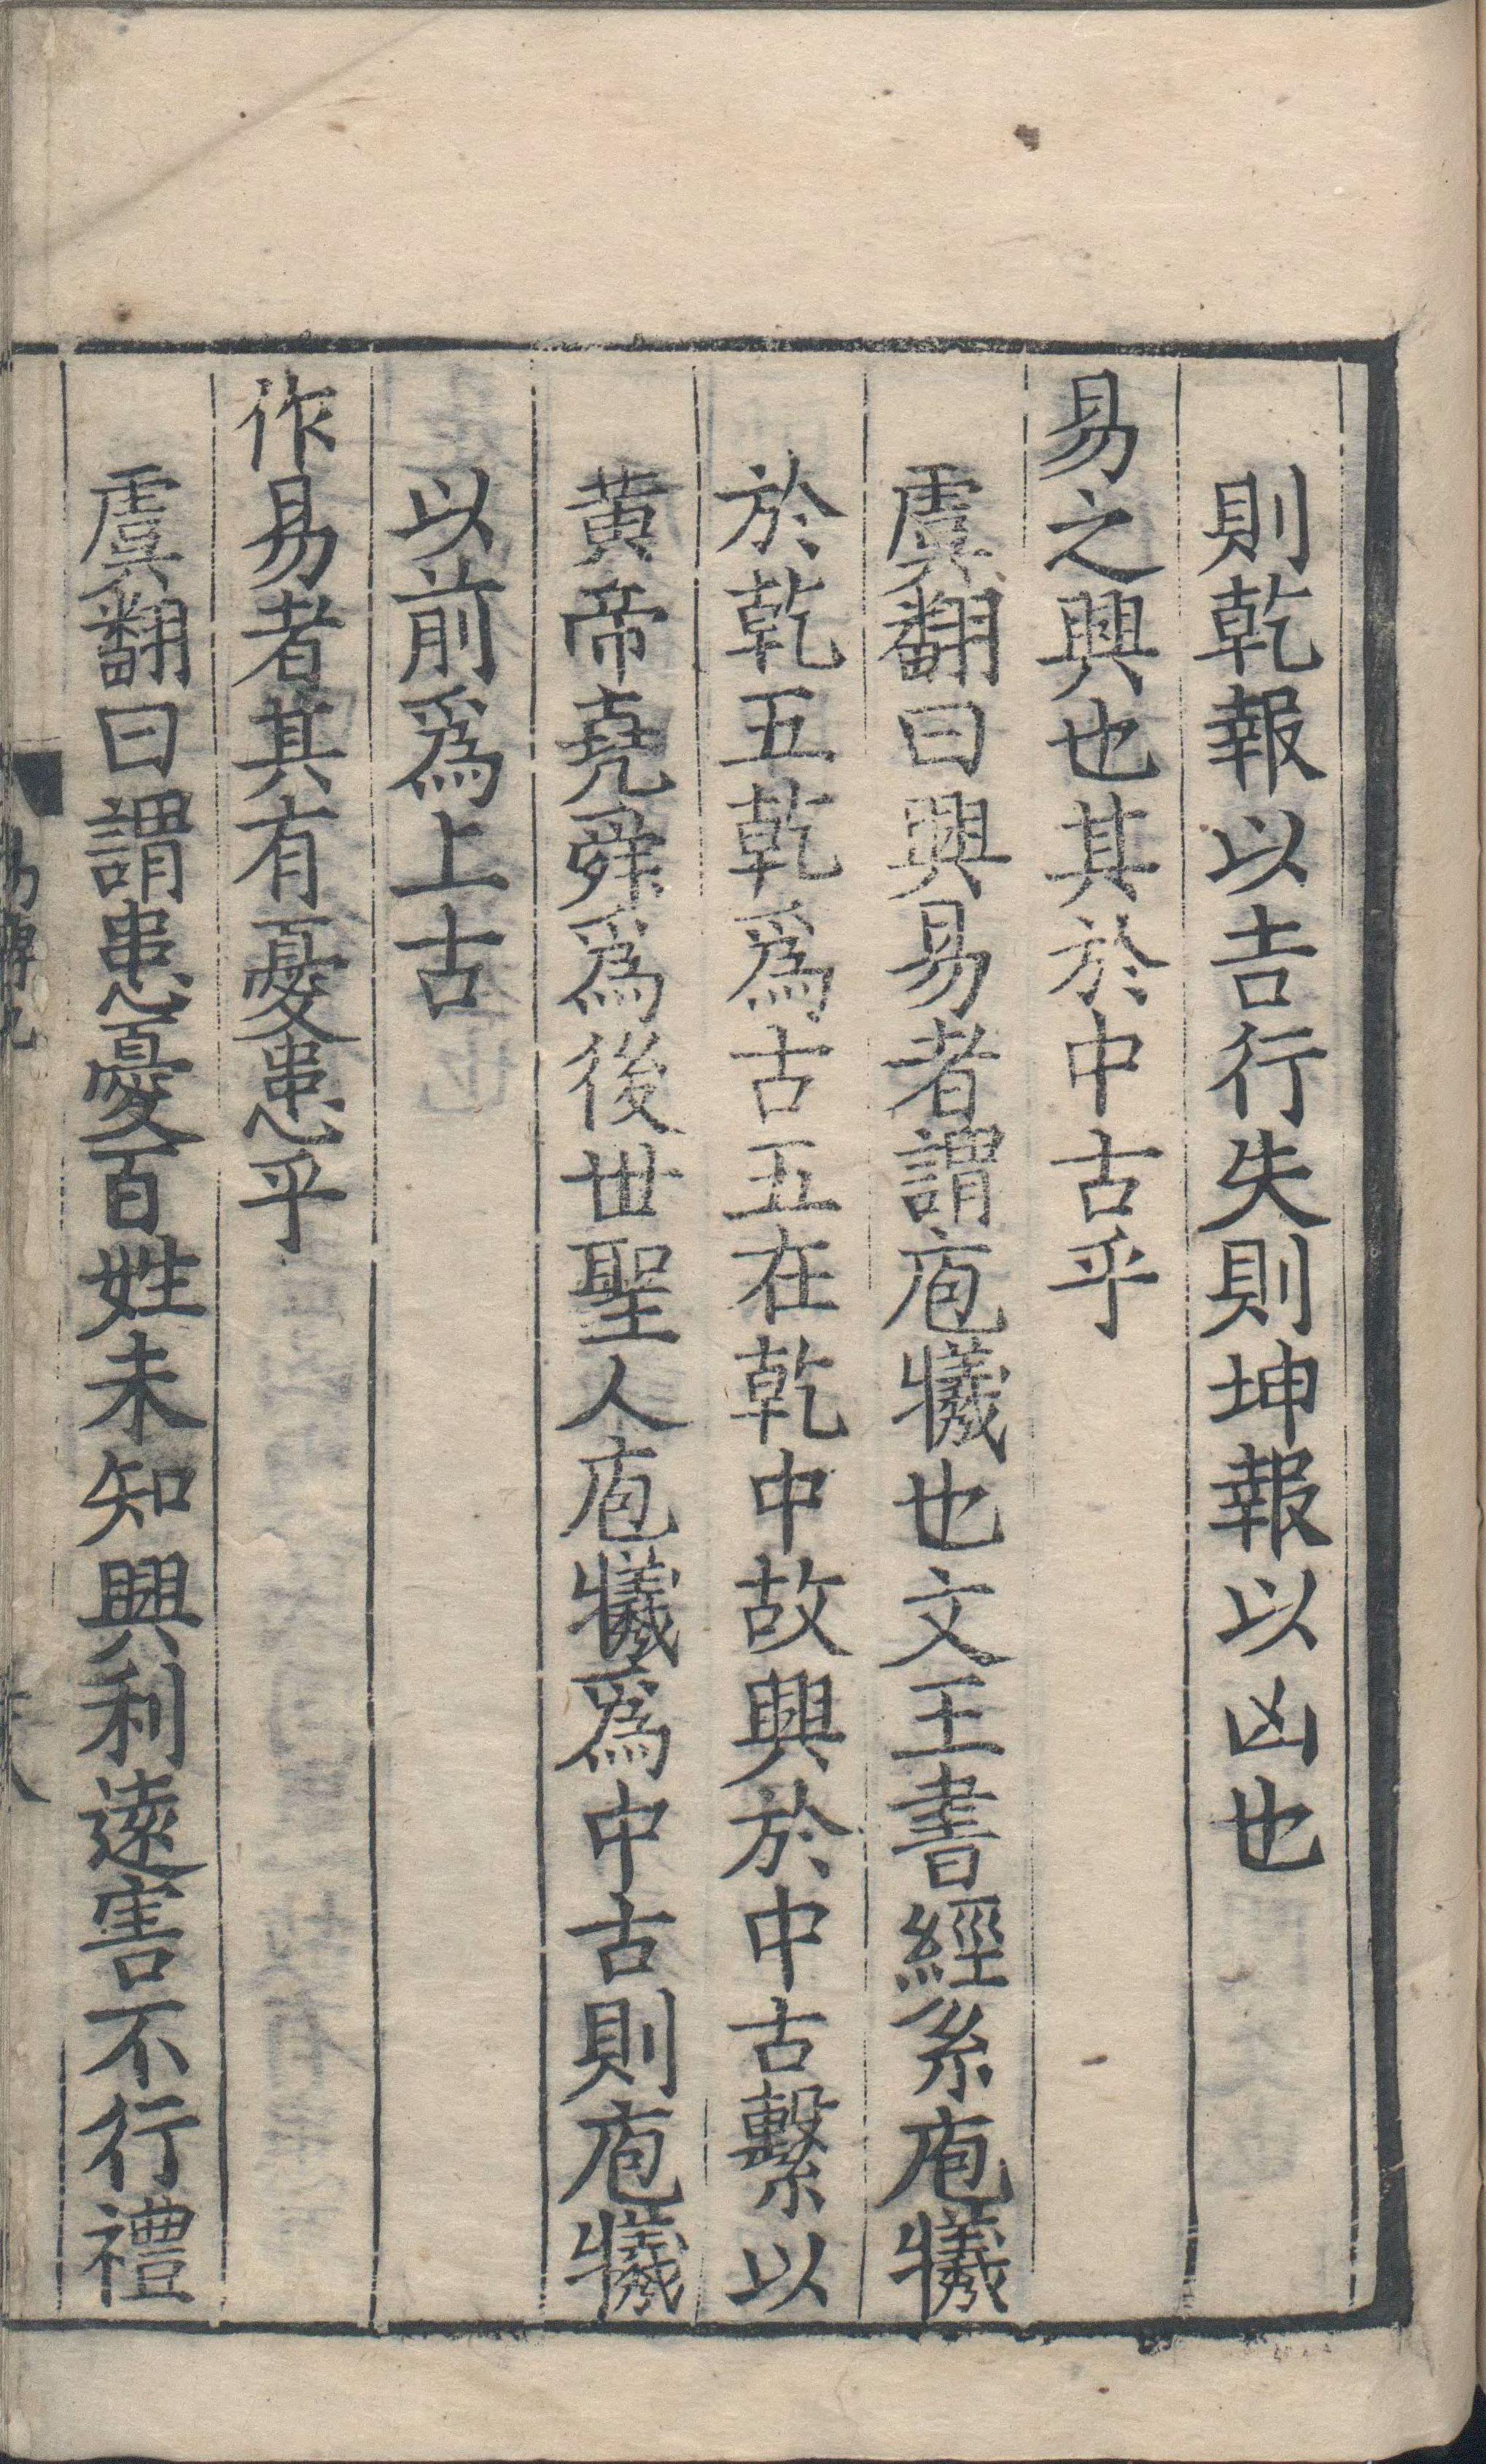 則乾報以吉行失則坤報以凶也
易之興也其於中古乎
虞翻曰興易者謂庖犧也文王書經系庖犧
於乾五乾爲古五在乾中故興於中古繫以
黃帝堯舜爲後世聖人庖犧爲中古則庖犧
以前爲上古
作易者其有憂患乎
虞翻曰謂患憂百姓未知興利遠害不行禮